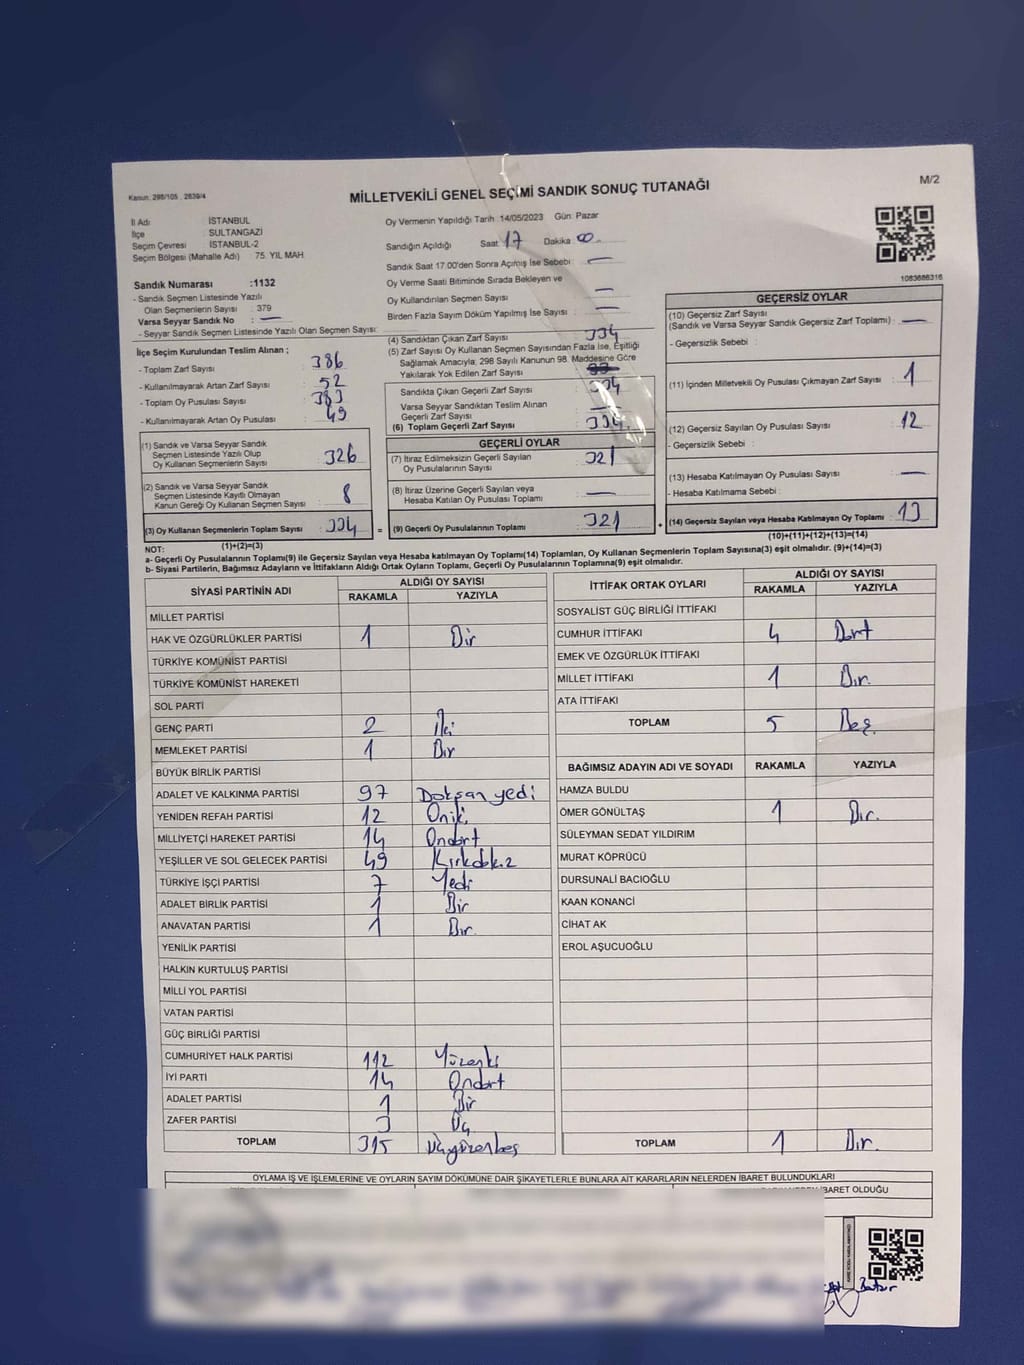 Kanun: 298/105 , 2839/4
MİLLETVEKİLİ GENEL SEÇİMİ SANDIK SONUÇ TUTANAĞI
M/2
İl Adı : İSTANBUL
İlçe : SULTANGAZİ
Seçim Çevresi : İSTANBUL-2
Seçim Bölgesi (Mahalle Adı) : 75. YIL MAH.
Oy Vermenin Yapıldığı Tarih :14/05/2023 Gün: Pazar
Sandığın Açıldığı Saat 17 Dakika 00
Sandık Saat 17.00'den Sonra Açılmış İse Sebebi : —
Oy Verme Saati Bitiminde Sırada Bekleyen ve
Oy Kullandırılan Seçmen Sayısı : —
Birden Fazla Sayım Döküm Yapılmış İse Sayısı : —
1083686316
Sandık Numarası :1132
- Sandık Seçmen Listesinde Yazılı
Olan Seçmenlerin Sayısı : 379
Varsa Seyyar Sandık No : —
- Seyyar Sandık Seçmen Listesinde Yazılı Olan Seçmen Sayısı:
İlçe Seçim Kurulundan Teslim Alınan ;
- Toplam Zarf Sayısı : 386
- Kullanılmayarak Artan Zarf Sayısı : 52
- Toplam Oy Pusulası Sayısı : 383
- Kullanılmayarak Artan Oy Pusulası : 49
(1) Sandık ve Varsa Seyyar Sandık
Seçmen Listesinde Yazılı Olup
Oy Kullanan Seçmenlerin Sayısı : 326
(2) Sandık ve Varsa Seyyar Sandık
Seçmen Listesinde Kayıtlı Olmayan
Kanun Gereği Oy Kullanan Seçmen Sayısı : 8
(3) Oy Kullanan Seçmenlerin Toplam Sayısı : 334
(1)+(2)=(3)
(4) Sandıktan Çıkan Zarf Sayısı : 334
(5) Zarf Sayısı Oy Kullanan Seçmen Sayısından Fazla İse, Eşitliği
Sağlamak Amacıyla; 298 Sayılı Kanunun 98. Maddesine Göre
Yakılarak Yok Edilen Zarf Sayısı :
Sandıkta Çıkan Geçerli Zarf Sayısı : 334
Varsa Seyyar Sandıktan Teslim Alınan
Geçerli Zarf Sayısı : —
(6) Toplam Geçerli Zarf Sayısı : 334
GEÇERLİ OYLAR
(7) İtiraz Edilmeksizin Geçerli Sayılan
Oy Pusulalarının Sayısı : 321
(8) İtiraz Üzerine Geçerli Sayılan veya
Hesaba Katılan Oy Pusulası Toplamı : —
= (9) Geçerli Oy Pusulalarının Toplamı : 321
GEÇERSİZ OYLAR
(10) Geçersiz Zarf Sayısı
(Sandık ve Varsa Seyyar Sandık Geçersiz Zarf Toplamı) : —
- Geçersizlik Sebebi :
(11) İçinden Milletvekili Oy Pusulası Çıkmayan Zarf Sayısı : 1
(12) Geçersiz Sayılan Oy Pusulası Sayısı : 12
- Geçersizlik Sebebi :
(13) Hesaba Katılmayan Oy Pusulası Sayısı : —
- Hesaba Katılmama Sebebi :
+ (14) Geçersiz Sayılan veya Hesaba Katılmayan Oy Toplamı : 13
(10)+(11)+(12)+(13)=(14)
NOT:
a- Geçerli Oy Pusulalarının Toplamı(9) ile Geçersiz Sayılan veya Hesaba katılmayan Oy Toplamı(14) Toplamları, Oy Kullanan Seçmenlerin Toplam Sayısına(3) eşit olmalıdır. (9)+(14)=(3)
b- Siyasi Partilerin, Bağımsız Adayların ve İttifakların Aldığı Ortak Oyların Toplamı, Geçerli Oy Pusulalarının Toplamına(9) eşit olmalıdır.
SİYASİ PARTİNİN ADI ALDIĞI OY SAYISI
RAKAMLA YAZIYLA
MİLLET PARTİSİ
HAK VE ÖZGÜRLÜKLER PARTİSİ 1 Bir
TÜRKİYE KOMÜNİST PARTİSİ
TÜRKİYE KOMÜNİST HAREKETİ
SOL PARTİ
GENÇ PARTİ 2 İki
MEMLEKET PARTİSİ 1 Bir
BÜYÜK BİRLİK PARTİSİ
ADALET VE KALKINMA PARTİSİ 97 Doksan yedi
YENİDEN REFAH PARTİSİ 12 Oniki
MİLLİYETÇİ HAREKET PARTİSİ 14 Ondört
YEŞİLLER VE SOL GELECEK PARTİSİ 49 Kırkdokuz
TÜRKİYE İŞÇİ PARTİSİ 7 Yedi
ADALET BİRLİK PARTİSİ 1 Bir
ANAVATAN PARTİSİ 1 Bir.
YENİLİK PARTİSİ
HALKIN KURTULUŞ PARTİSİ
MİLLİ YOL PARTİSİ
VATAN PARTİSİ
GÜÇ BİRLİĞİ PARTİSİ
CUMHURİYET HALK PARTİSİ 112
İYİ PARTİ 14 Ondört
ADALET PARTİSİ 1 Bir
ZAFER PARTİSİ 3 Üç
TOPLAM 315 Üçyüzonbeş
İTTİFAK ORTAK OYLARI ALDIĞI OY SAYISI
RAKAMLA YAZIYLA
SOSYALİST GÜÇ BİRLİĞİ İTTİFAKI
CUMHUR İTTİFAKI 4 Dört
EMEK VE ÖZGÜRLÜK İTTİFAKI
MİLLET İTTİFAKI 1 Bir.
ATA İTTİFAKI
TOPLAM 5 Beş.
BAĞIMSIZ ADAYIN ADI VE SOYADI RAKAMLA YAZIYLA
HAMZA BULDU
ÖMER GÖNÜLTAŞ 1 Bir.
SÜLEYMAN SEDAT YILDIRIM
MURAT KÖPRÜCÜ
DURSUNALİ BACIOĞLU
KAAN KONANCİ
CİHAT AK
EROL AŞUCUOĞLU
TOPLAM 1 Bir.
OYLAMA İŞ VE İŞLEMLERİNE VE OYLARIN SAYIM DÖKÜMÜNE DAİR ŞİKAYETLERLE BUNLARA AİT KARARLARIN NELERDEN İBARET BULUNDUKLARI
İBARET OLDUĞU